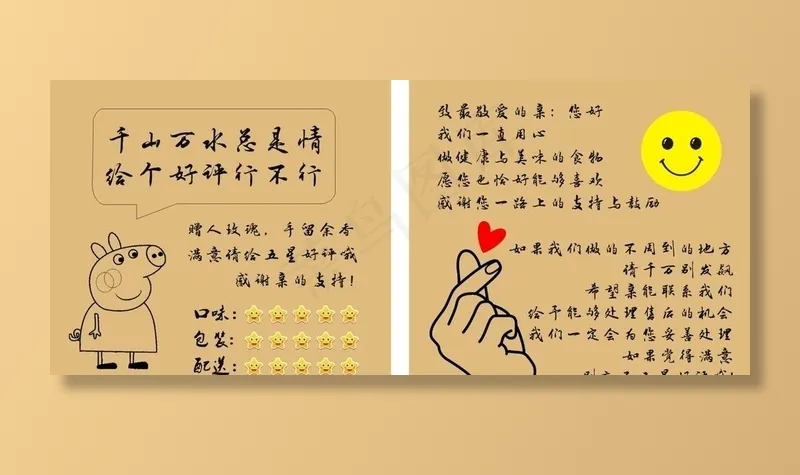 千山万水总是情
给个好评行不行
赠人玫瑰，手留余香
满意请给五星好评哦
感谢亲的支持！
口味：
包装：
配送：
致最敬爱的亲：您好
我们一直用心
做健康与美味的食物
愿您也恰好能够喜欢
感谢您一路上的支持与鼓励
如果我们做的不周到的地方
请千万别发飙
希望亲能联系我们
给予能够处理售后的机会
我们一定会为您妥善处理
如果觉得满意